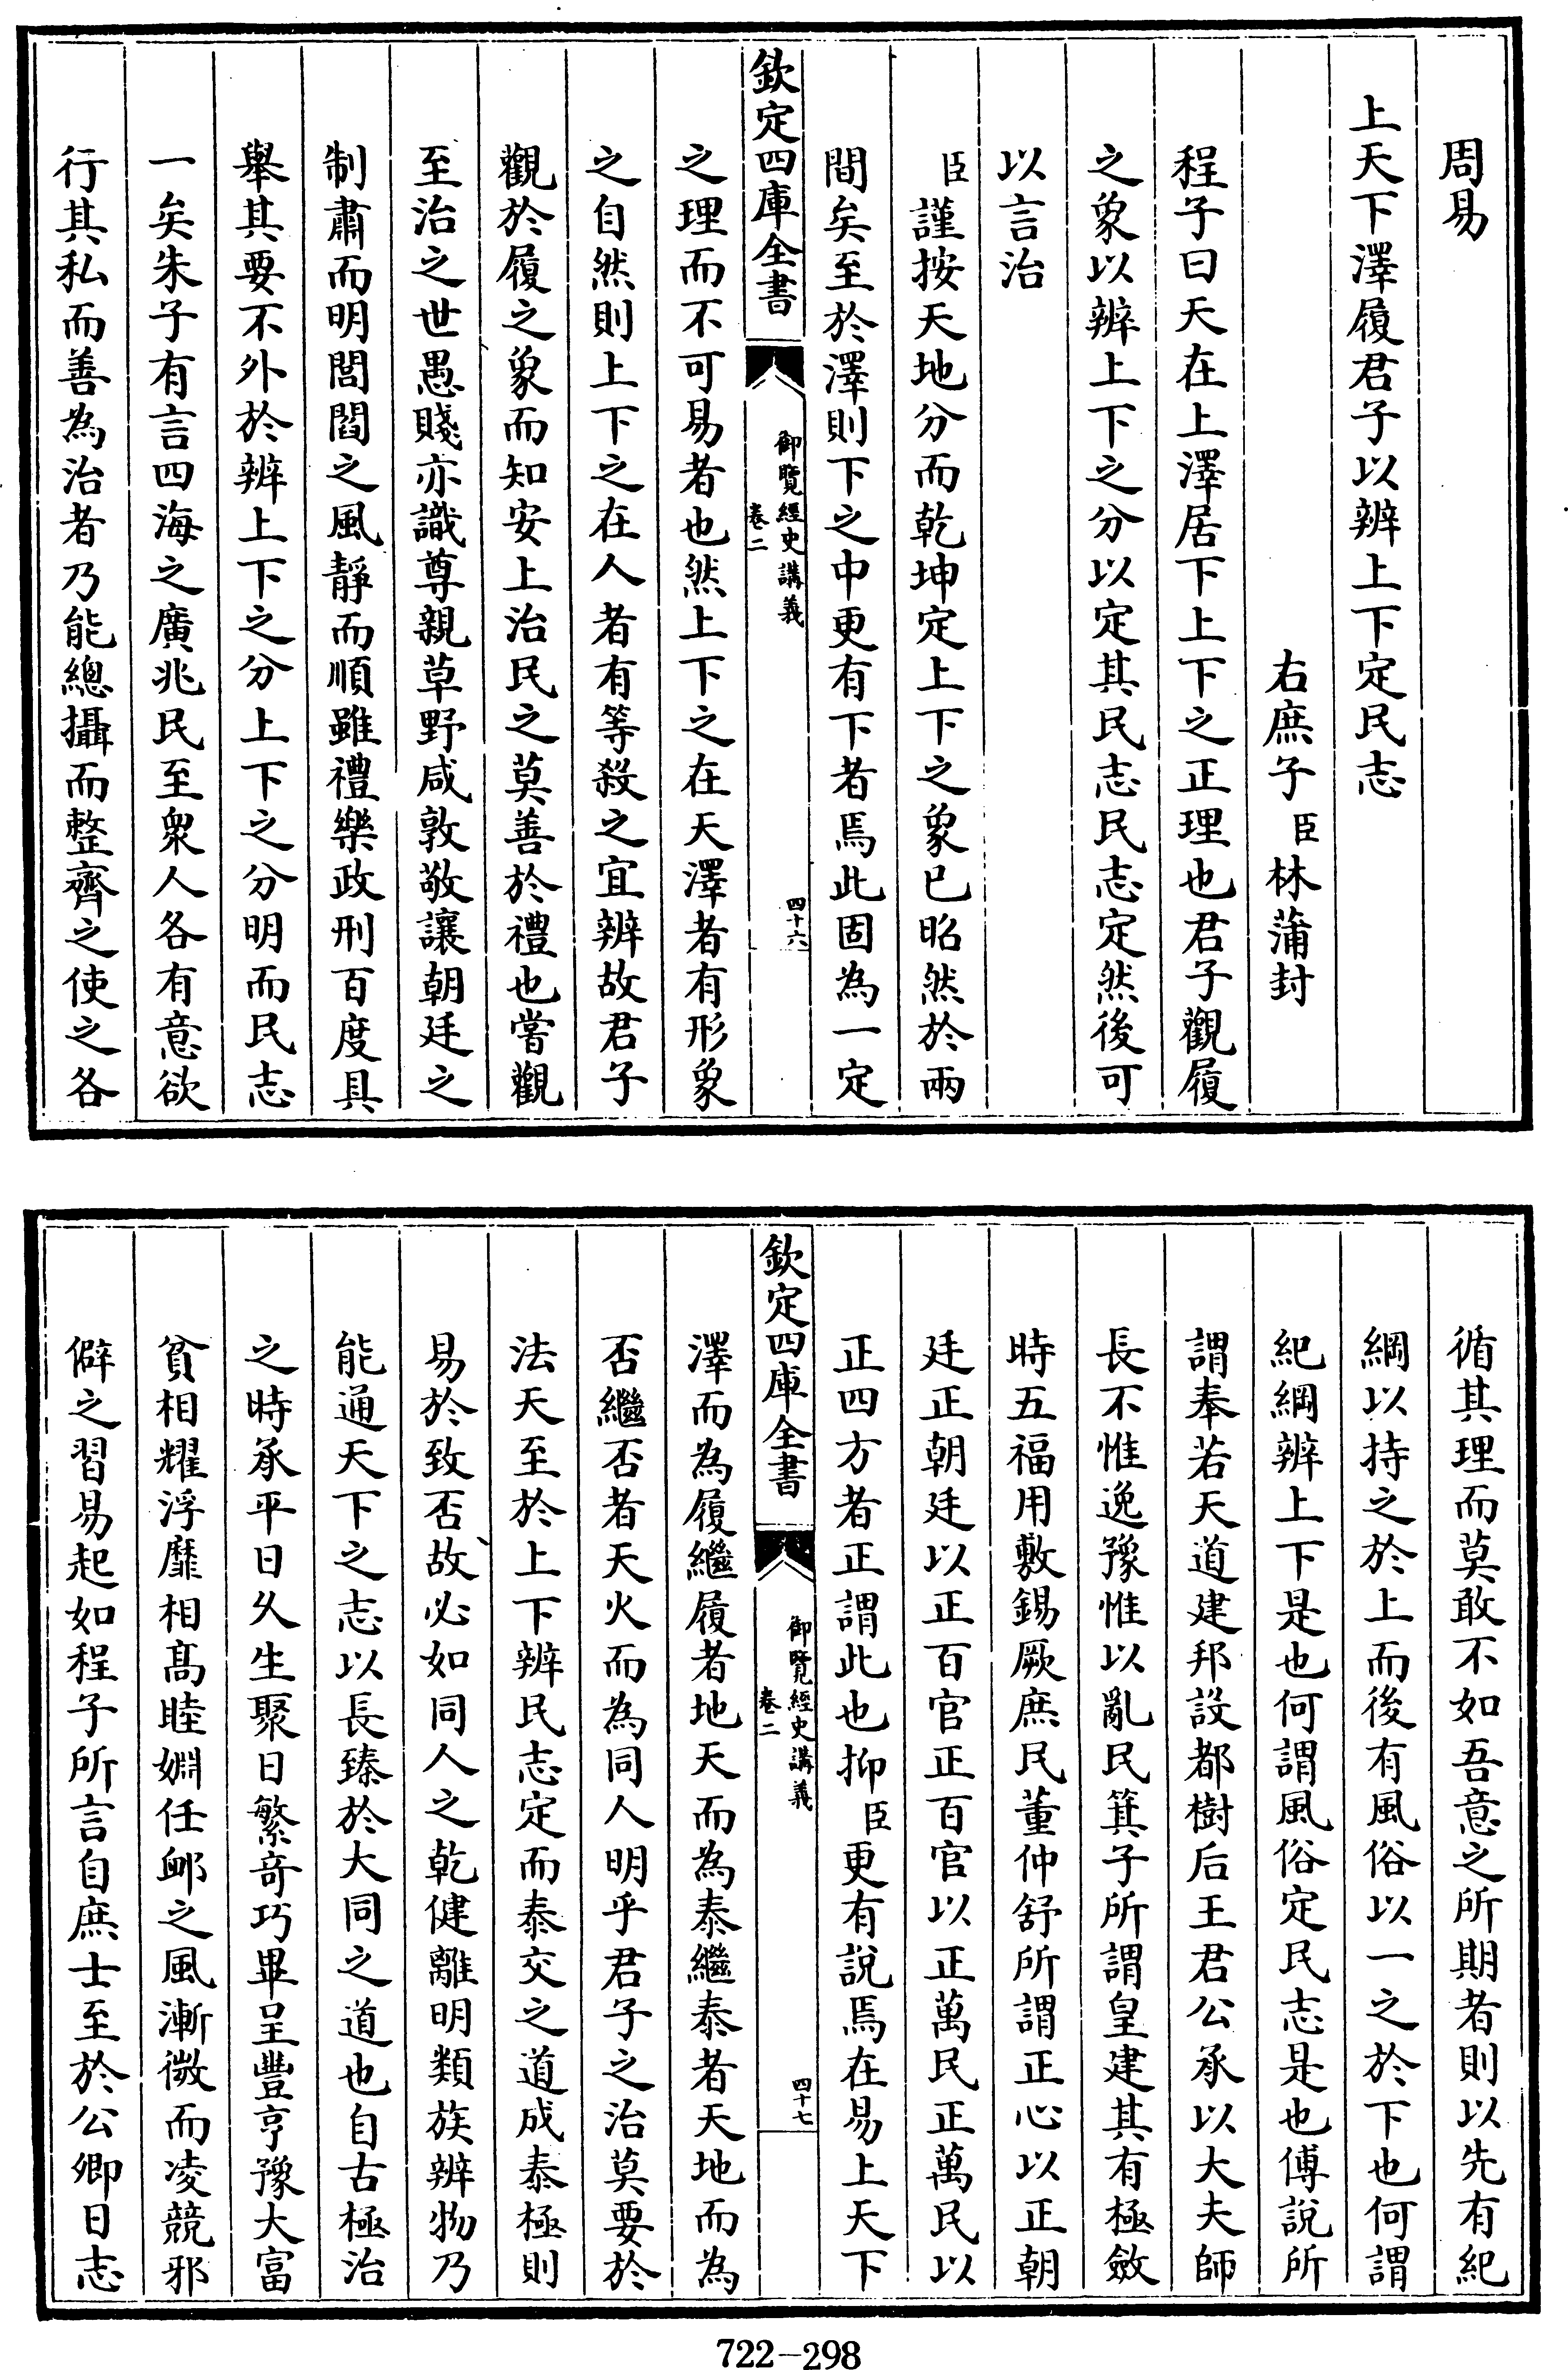 周易
上天下澤履君子以辨上下定民志
右庶子臣林蒲封
程子曰天在上澤居下上下之正理也君子觀履
之象以辨上下之分以定其民志民志定然後可
以言治
臣謹按天地分而乾坤定上下之象已昭然於兩
間矣至於澤則下之中更有下者焉此固為一定
欽定四庫全書
御覽經史講義
卷二
四十六
之理而不可易者也然上下之在天澤者有形象
之自然則上下之在人者有等殺之宜辨故君子
觀於履之象而知安上治民之莫善於禮也嘗觀
至治之世愚賤亦識尊親草野咸敦敬讓朝廷之
制肅而明閭閻之風靜而順雖禮樂政刑百度具
舉其要不外於辨上下之分上下之分明而民志
一矣朱子有言四海之廣兆民至衆人各有意欲
行其私而善為治者乃能總攝而整齊之使之各
循其理而莫敢不如吾意之所期者則以先有紀
綱以持之於上而後有風俗以一之於下也何謂
紀綱辨上下是也何謂風俗定民志是也傅說所
謂奉若天道建邦設都樹后王君公承以大夫師
長不惟逸豫惟以亂民箕子所謂皇建其有極斂
時五福用敷錫厥庶民董仲舒所謂正心以正朝
廷正朝廷以正百官正百官以正萬民正萬民以
正四方者正謂此也抑臣更有說焉在易上天下
欽定四庫全書
御覽經史講義
卷二
四十七
澤而為履繼履者地天而為泰繼泰者天地而為
否繼否者天火而為同人明乎君子之治莫要於
法天至於上下辨民志定而泰交之道成泰極則
易於致否故必如同人之乾健離明類族辨物乃
能通天下之志以長臻於大同之道也自古極治
之時承平日久生聚日繁奇巧畢呈豐亨豫大富
貧相耀浮靡相髙睦婣任䘏之風漸微而凌競邪
僻之習易起如程子所言自庶士至於公卿日志
722-298